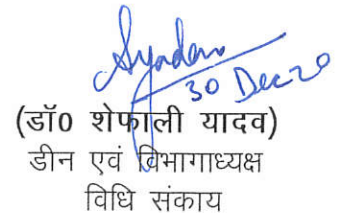 Syadav
30 Dec 20
(डॉ0 शेफाली यादव)
डीन एवं विभागाध्यक्ष
विधि संकाय